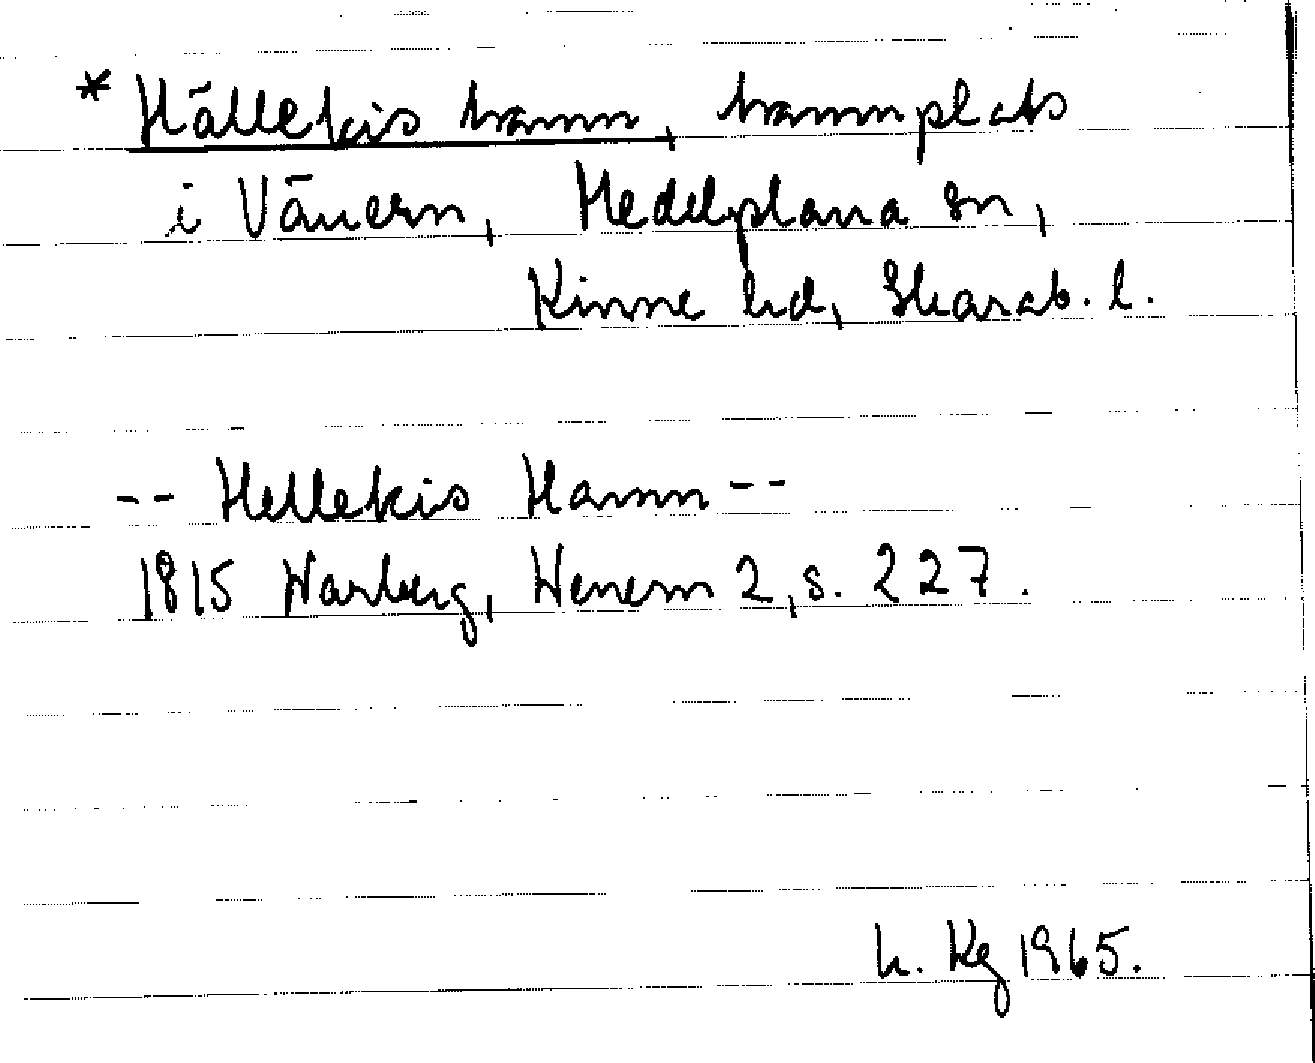 * Hällekis hamn, hamnplats
i Vänern, Medelplana sn,
Kinne hd, Skarab. l.
-- Hellekis Hamn --
1815 Warberg, Wenern 2, s. 227.
h. Kg 1965.